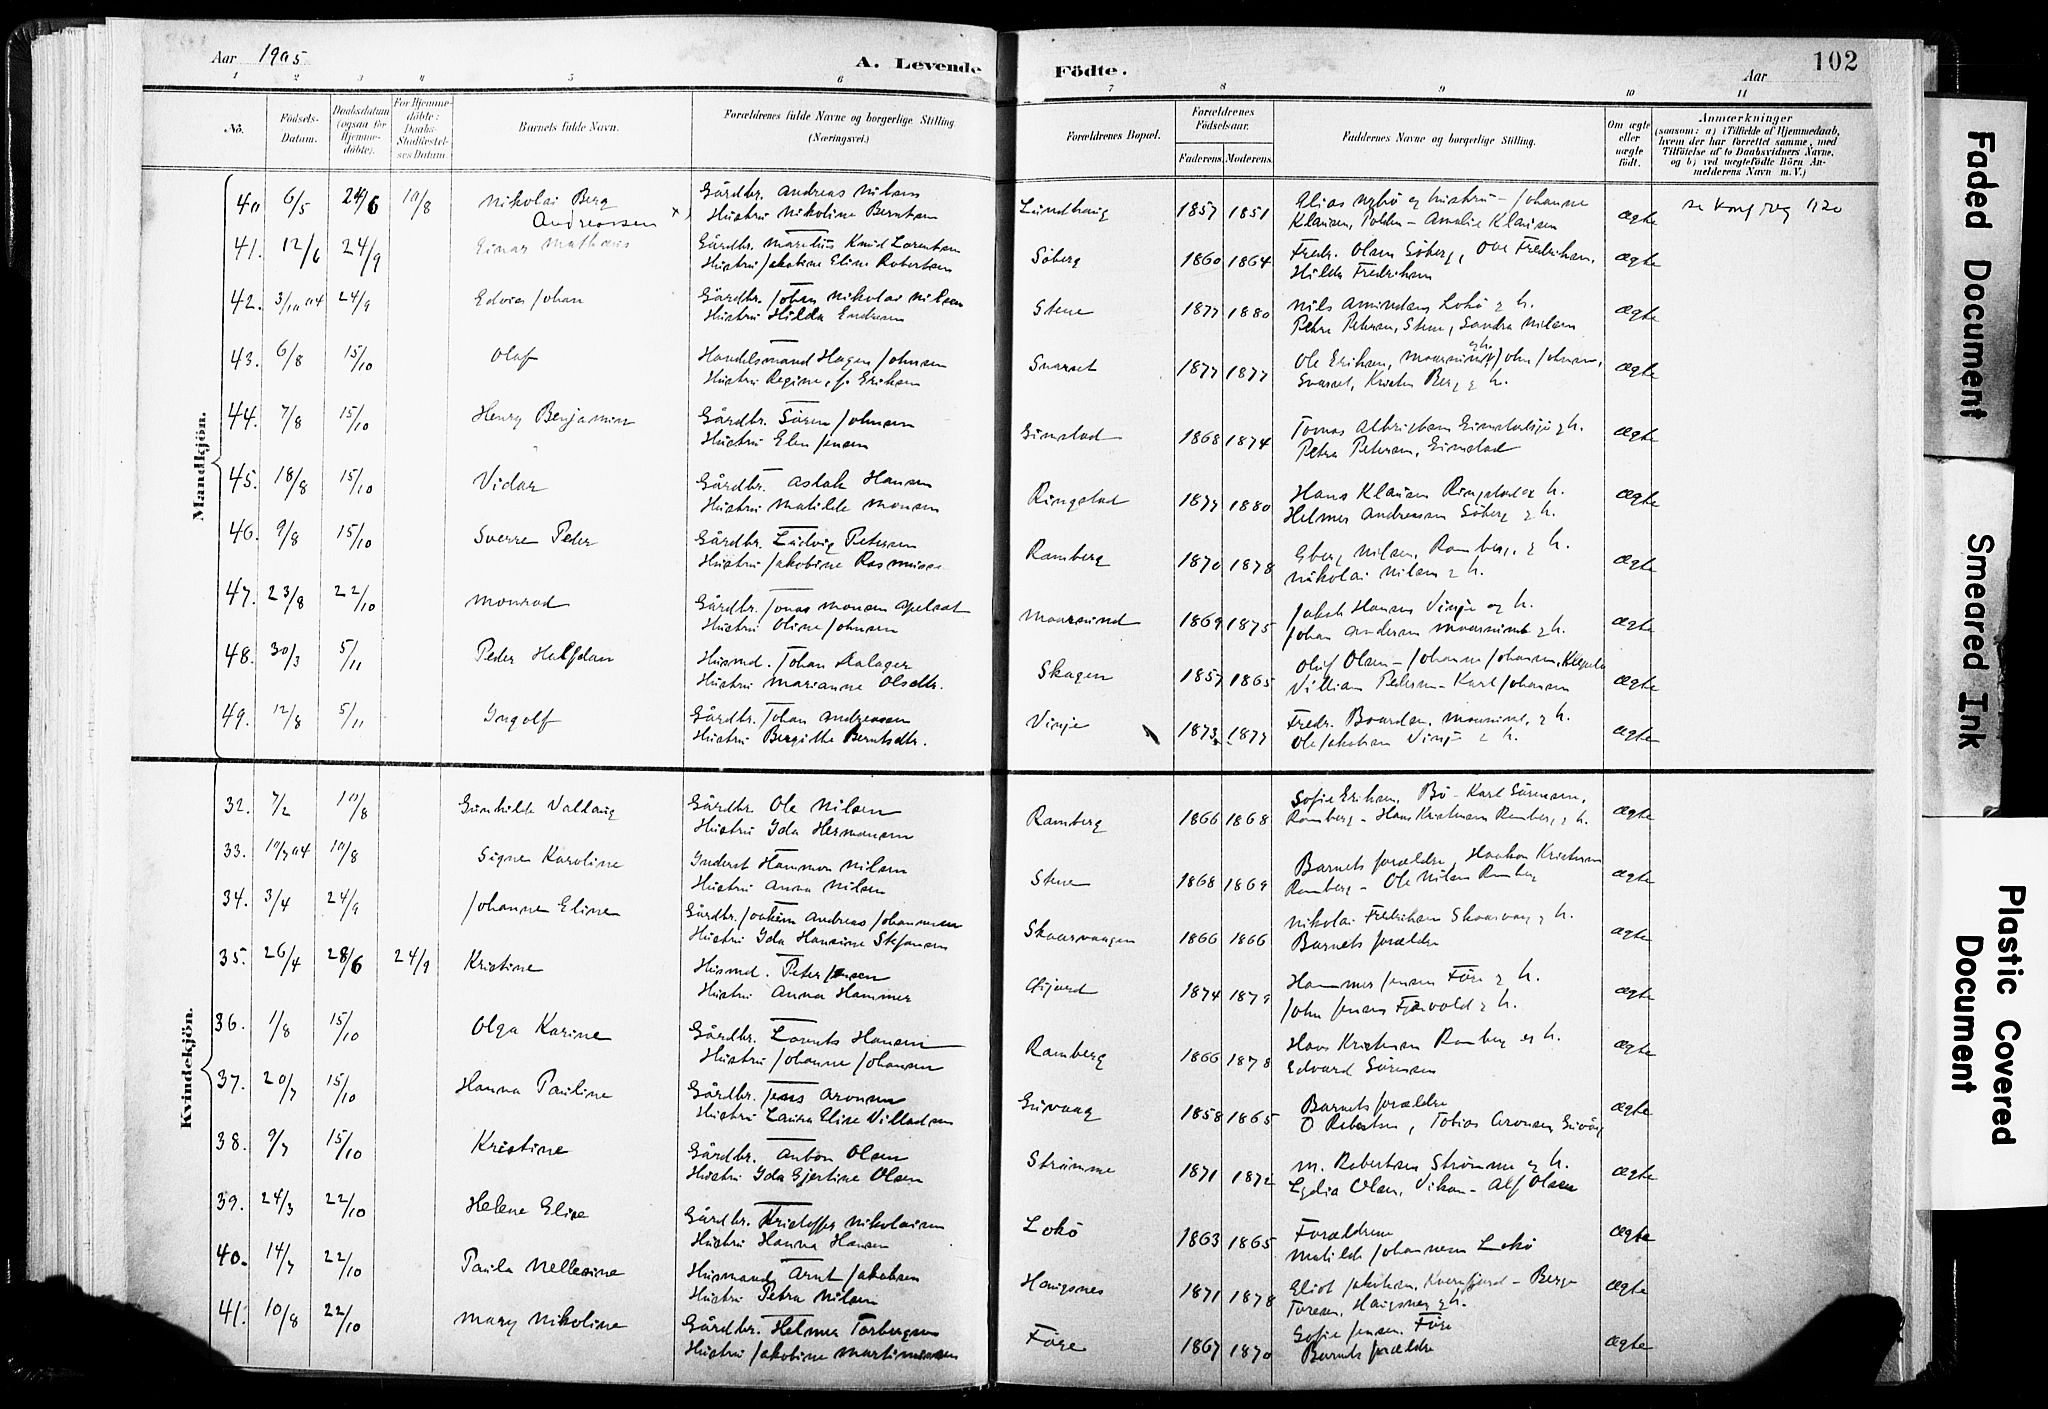 Aar 1905
A. Levende
Födte.
Aar
102
1 2 3 4 5 6 7 8 9 10 11
No.
Födsels-
Datum.
Daabsdatum
(ogsaa for
Hjemme-
döbte).
For Hjemme-
döbte:
Daabs-
Stadfæstel-
ses Datum.
Barnets fulde Navn.
Forældrenes fulde Navne og borgerlige Stilling
(Næringsvei.)
Forældrenes Bopæl.
Forældrenes
Födselsaar.
Faderens. Moderens.
Faddernes Navne og borgerlige Stilling.
Om ægte
eller
uægte
födt.
Anmærkninger
(saasom: a) i Tilfælde af Hjemmedaab,
hvem der har forrettet samme, med
Tilföielse af to Daabsvidners Navne,
og b) ved uegtefödte Börn An-
melderens Navn m. V.)
Mandkjön.
40 6/5 24/6 10/8 Nikolai Berg Gårdbr. Andreas Nilsen
Andreassen x) Hustru Nikoline Berntsen
Lundhaug 1857 1851
Klausen, Amalie Klausen ægte
41. 12/6 24/9 Einar Mathæus Gårdbr. Marelius Knud Lorentsen
Hustru Jakobine Eline Robertsen
Söberg 1860 1864 Fredr. Olsen Söberg, Ove Fredriksen, ægte
Hilda Fredriksen
42. 3/10 04 24/9 Edvin Johan Gårdbr. Johan Nikolai Nilsen
Hustru Hilda Endresen
Stene 1877 1880 Nils Amundsen Lokö & h. ægte
Petra Petersen, Stene, Sandra Nilsen
43. 6/8 15/10 Olaf Handelsmand Hagen Johnsen
Hustru Regine, f. Eriksen
1877 1877 Ole Eriksen, Maarsund John Johnsen, ægte
Kristen Berg & h.
44. 7/8 15/10 Henry Benjamin Gårdbr. Sören Johnsen
Hustru Elen Jensen
Gimstad 1868 1874 Tomas Albrigtsen & h. ægte
Petra Petersen, Gimstad
45. 18/8 15/10 Vidar Gårdbr. Aslak Hansen
Hustru Matilde Monsen
Ringstad 1877 1880 Hans Klausen Ringstad & h. ægte
Helmer Andreassen Söberg & h.
46. 9/8 15/10 Sverre Peder Gårdbr. Ludvig Petersen
Hustru Jakobine
Ramberg 1870 1878 Nilsen, Ramberg, & h. ægte
Nikolai Nilsen & h.
47. 23/8 22/10 Monrad Gårdbr. Jonas Monsen
Hustru Oline Johnsen
Maarsund 1869 1875 Jakob Hansen Vinje og h. ægte
Johan Andersen Maarsund & h.
48. 30/3 5/11 Peder Halfdan Husmd. Johan
Hustru Marianne Olsdtr.
Skagen 1857 1865 Oluf Olsen - Johanne Johansen, ægte
Villiam Pedersen - Karl Johansen
49. 12/8 5/11 Ingolf Gårdbr. Johan Andreassen
Hustru Bergithe Berntsdtr.
Vinje 1873 1877 Fredr. Maarsund, & h. ægte
Ole Jakobsen Vinje & h.
Kvindekjön.
32. 7/2 10/8 Gunhilde Valborg Gårdbr. Ole Nilsen
Hustru Ida Hermansen
Ramberg 1866 1868 Sofie Eriksen, Bö - Karl Sörensen, ægte
Ramberg - Hans Kristensen Ramberg & h.
33. 10/7 04 10/8 Signe Karoline Inderst Hammer Nilsen
Hustru Anna Nilsen
Stene 1868 1869 Barnets forældre, Haakon Kristensen ægte
Ramberg - Ole Nilsen Ramberg
34. 3/4 24/9 Johanne Eline Gårdbr. Joakim Andreas Johannesen
Hustru Ida Hansine Stefansen
Skaarvaagen 1866 1866 Nikolai Fredriksen Skaarvaag & h. ægte
Barnets forældre
35. 26/4 28/6 24/9 Kristine Husmd. Peter Jensen
Hustru Anna Hammer
1874 1879 Hammer Jensen Före & h. ægte
John Jensen & h.
36. 1/8 15/10 Olga Karine Gårdbr. Lorents Hansen
Hustru Johanne Johansen
Ramberg 1866 1878 Hans Kristensen Ramberg og h. ægte
Edvard Sörensen
37. 20/7 15/10 Hanna Pauline Gårdbr. Jens Aronsen
Hustru Laura Elise Villadsen
Guvaag 1858 1865 Barnets forældre ægte
O Robertsen, Tobias Aronsen, Guvåg
38. 9/7 15/10 Kristine Gårdbr. Anton Olsen
Hustru Ida Gjertine Olsen
Strömme 1871 1872 M. Robertsen Strömme & h. ægte
Lydia Olsen, Vikan - Alf Olsen
39. 24/3 22/10 Helene Elise Gårdbr. Kristoffer Nikolaisen
Hustru Hanna Hansen
Lokö 1863 1865 Forældrene ægte
Matilde Johannesen Lokö
40. 14/7 22/10 Paula Nellesine Husmand Arnt Jakobsen
Hustru Petra Nilsen
Haugsnes 1871 1878 Eliot Jakobsen, Kvernfjord - Berge ægte
Toresen, Haugsnes & h.
41. 10/8 22/10 Mary Nikoline Gårdbr. Helmer Torbergsen
Hustru Jakobine Martinussen
Före 1867 1870 Sofie Jensen, Före ægte
Barnets forældre
Faded Document
Smeared Ink
Plastic Covered
Document